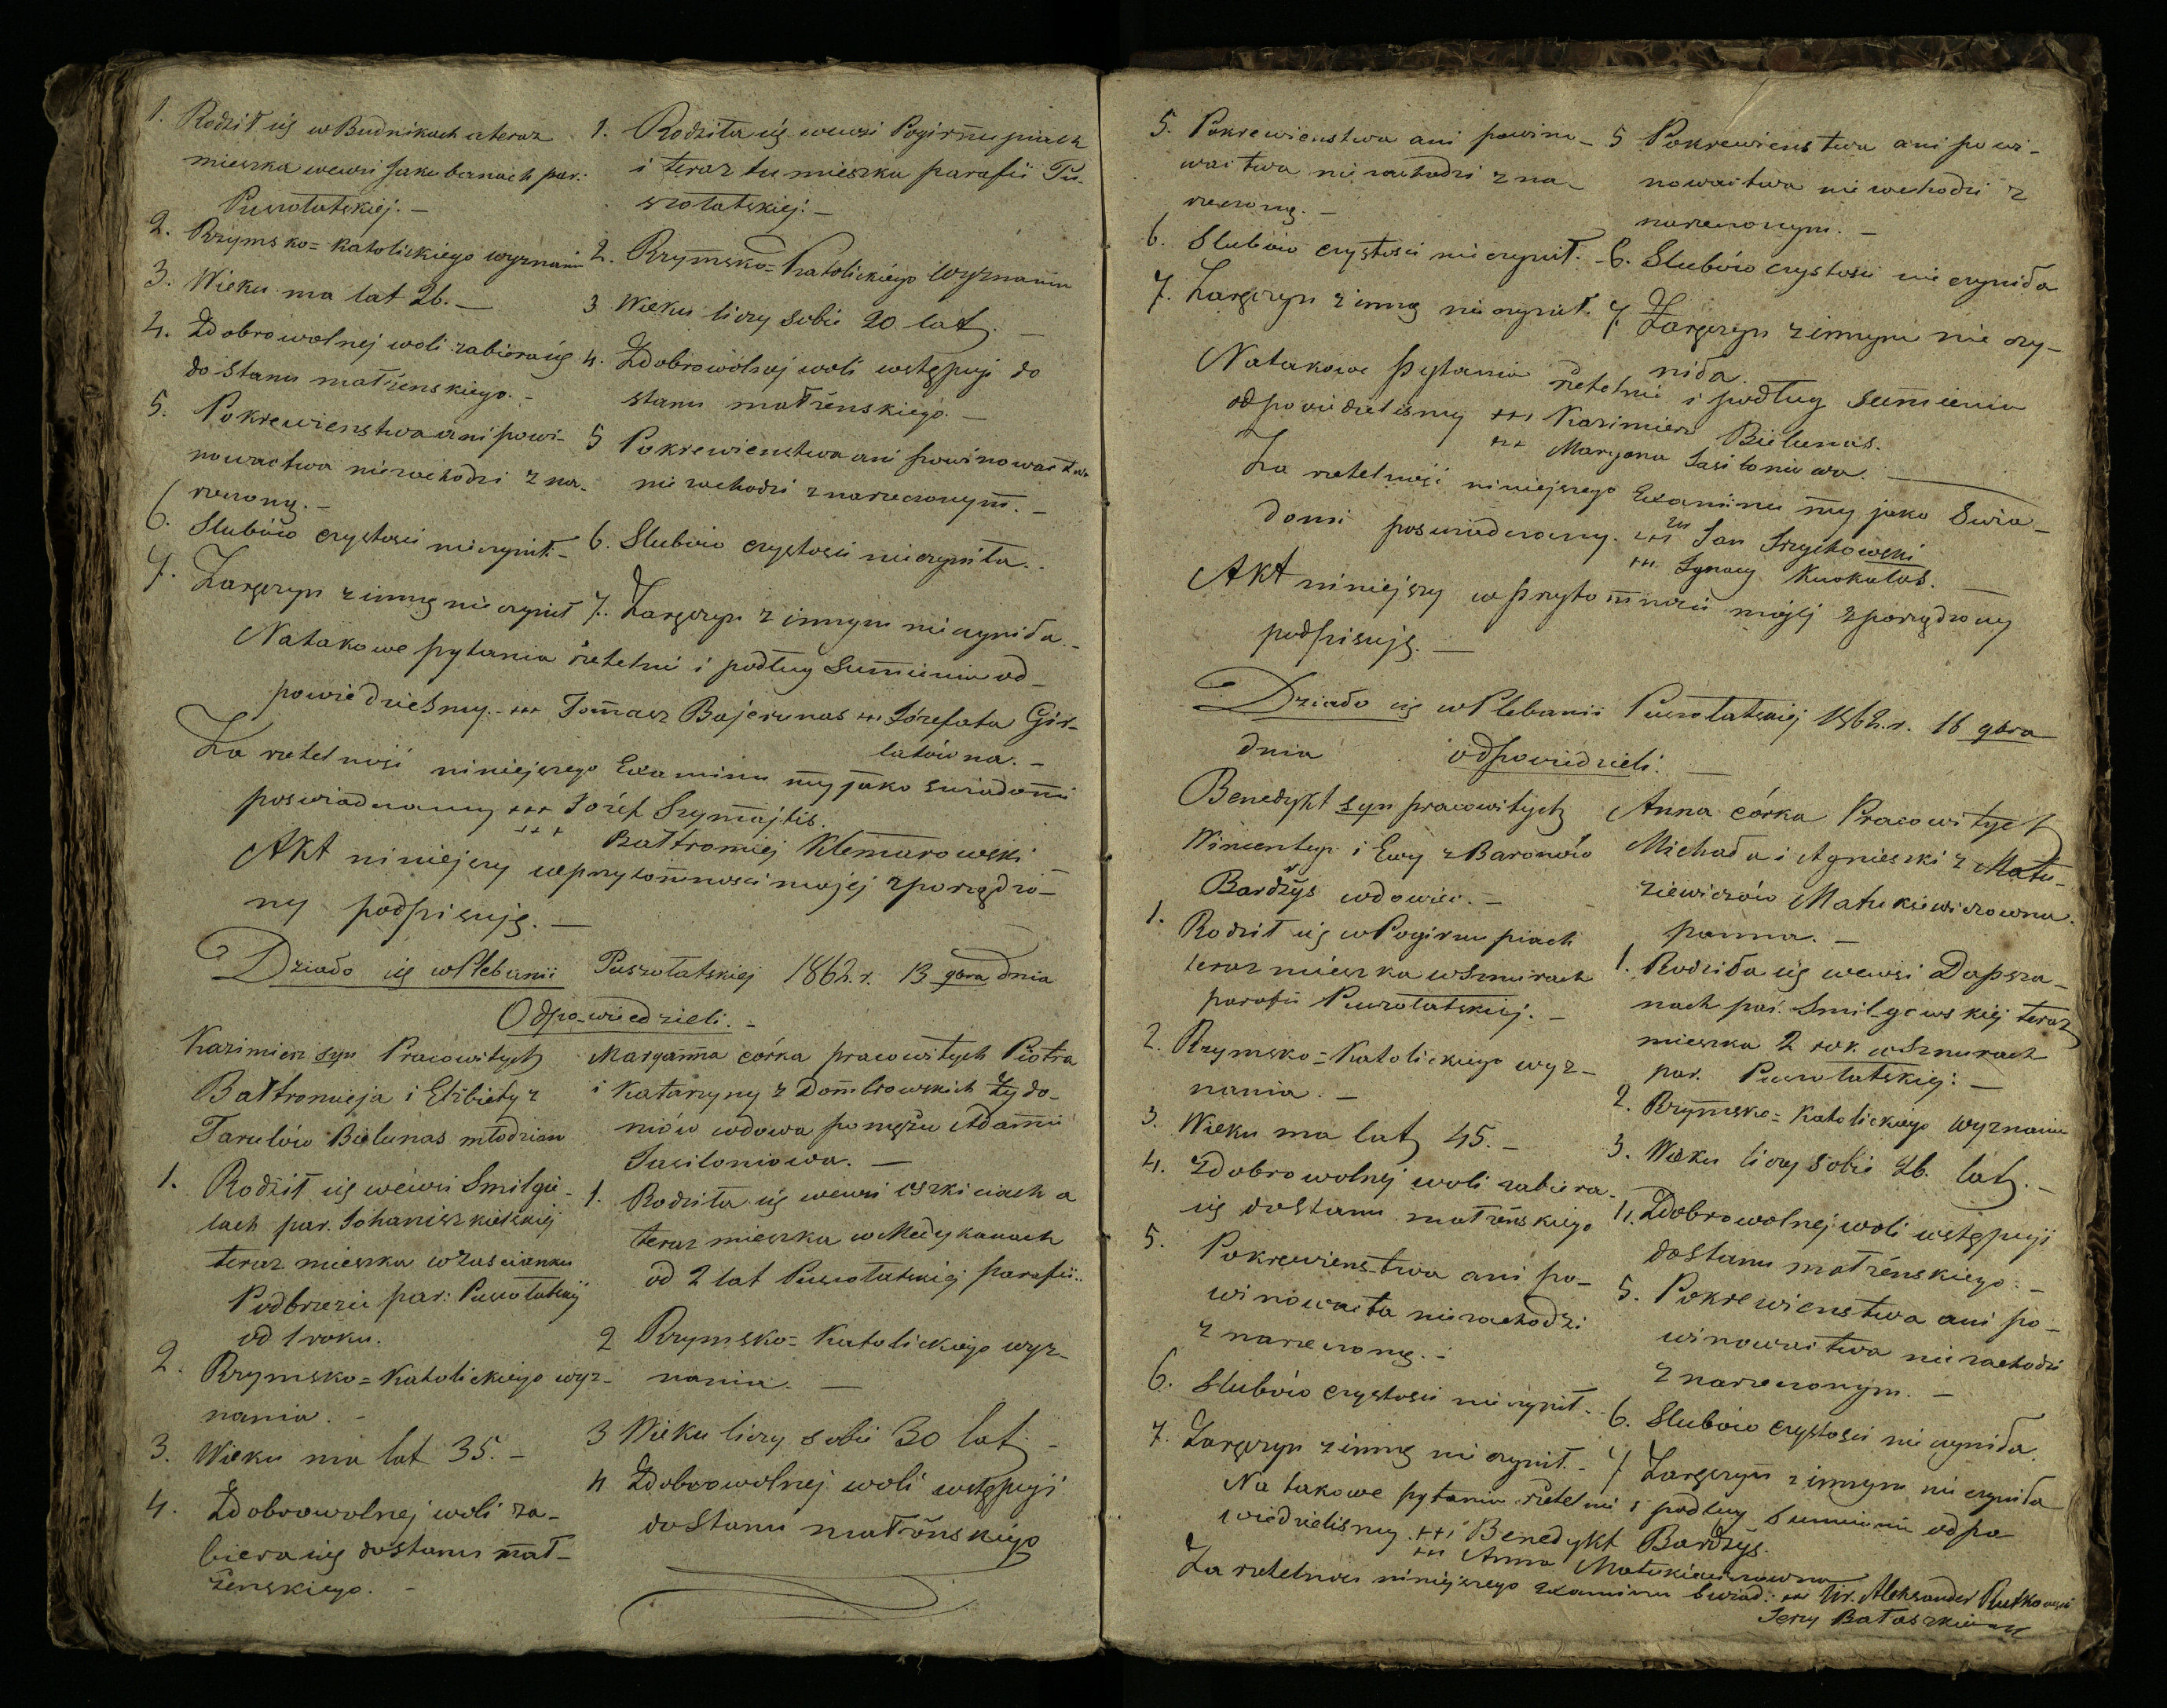 1. Rodził się w Budnikach a teraz
mieszka wewsi Jakubanach par:
Puszołatskiej. —
2. Rzymsko=Katolickiego wyznania
3. Wieku ma lat 26. —
4. Zdobrowolnej woli zabiera się
do Stanu małżenskiego. -
5. Pokrewienstwa ani powi-
nowactwa niezachodzi z na-
rzeczoną. -
6. Slubów czystosci nieczynił. -
7. Zaręczyn z inną nie czynił
1. Rodziła się wewsi Pogirnupiach
i teraz tu mieszka parafii Pu-
szołatskiej. —
2. Rzymsko=Katolickiego Wyznania
3 Wieku liczy sobie 20 lat. —
4. Zdobrowolnej woli wstępuje do
stanu małżenskiego. —
5 Pokrewienstwa ani powinowactwa
nie zachodzi z narzeczonym. -
6. Slubów czystosci nieczyniła. -
7. Zaręczyn z innym nieczyniła. -
Natakowe pytania rzetelnie i podług Sumienia od-
powiedzieliśmy. +++ Tomasz Bajorunas +++ Józefata Gir-
łatówna. -
Za rzetelność niniejszego Examinu my jako świadomi
poswiadczamy +++ Józef Szymajtis.
+++ Bałtromiej Klemarowski
Akt niniejszy wprzytomnosci mojej zporządzo-
ny podpisuję. —
Działo się w Plebanii Puszołatskiej 1862. r. 13 9bra dnia
Odpowiedzieli. -
Kazimierz syn Pracowitych
Bałtromieja i Elżbiety z
Tarulów Bielunas młodzian
1. Rodził się wewsi Smilgie-
lach par. Johaniszkielskiej
teraz mieszka wzascianku
Podbrzezie par: Puszołatskiej
od 1 roku.
2. Rzymsko=Katolickiego wyz-
nania. -
3. Wieku ma lat 35. -
4. Zdobrowolnej woli za-
biera się dostanu mał-
żenskiego. -
Maryanna córka pracowitych Piotra
i Katarzyny z Dombrowskich Żydo-
niów wdowa pomężu Adamie
Jasiloniowa. —
1. Rodziła się wewsi a
teraz mieszka w Medykanach
od 2 lat Puszołatskiej parafii.
2 Rzymsko=Katolickiego wyz-
nania. —
3 Wieku liczy sobie 30 lat. -
4 Zdobrowolnej woli wstępuje
dostanu małżenskiego
5. Pokrewienstwa ani powino-
wactwa niezachodzi z na-
rzeczoną. -
6. Slubów czystosci nieczynił. -
7. Zaręczyn z inną nieczynił.
5 Pokrewienstwa ani powi-
nowactwa niezachodzi z
narzeczonym. —
6. Slubów czystosci nie czyniła
7. Zaręczyn z innym nie czy-
niła.
Natakowe pytania rzetelnie i podług Sumienia
odpowiedzielismy +++ Kazimierz Bielunas.
+++ Maryana Jasiloniowa. —
Za rzetelność niniejszego Examinu my jako Swia-
domi poswiadczamy. +++ Jan Szychowski
+++ Ignacy Kuokalas. —
Akt niniejszy wprzytomnosci mojej zporządzony
podpisuję. —
Działo się w Plebanii Puszołatskiej 1862. r. 16 9bra
dnia odpowiedzieli. —
Benedykt syn pracowitych
Wincentego i Ewy z Baronów
Bardżys wdowiec. -
1. Rodził się w Pogirnupiach
teraz mieszka w Sznurach
parafii Puszołatskiej. -
2. Rzymsko=Katolickiego wyz-
nania. —
3. Wieku ma lat 45. -
4. Zdobrowolnej woli zabiera
się do stanu małżenskiego
5. Pokrewienstwa ani po-
winowacta niezachodzi
z narzeczoną. -
6. Slubów czystosci nie czynił. -
7. Zaręczyn z inną nie czynił. -
Anna córka Pracowitych
Michała i Agnieszki z Matu-
ziewiczów Matukiewiczowna
panna. —
1. Rodziła się wewsi Dapsza-
nach par. Smilgewskiej teraz
mieszka 2 rok w Sznurach
par. Puszołatskiej. —
2. Rzymsko=Katolickiego Wyznania
3. Wieku liczy sobie 26. lat. -
4. Zdobrowolnej woli wstępuje
dostanu małżenskiego. -
5. Pokrewienstwa ani po-
winowactwa niezachodzi
z narzeczonym. -
6. Slubów czystosci nie czyniła.
7 Zaręczyn z innym nie czyniła
Na takowe pytania rzetelnie i podług Sumienia odpo
wiedzielismy. +++ Benedykt Bardżys.
+++ Anna Matukiewiczowna
Za rzetelność niniejszego examinu swiad: +++ Ur. Aleksander Rutkowski
Jerzy Bałaszkiewicz